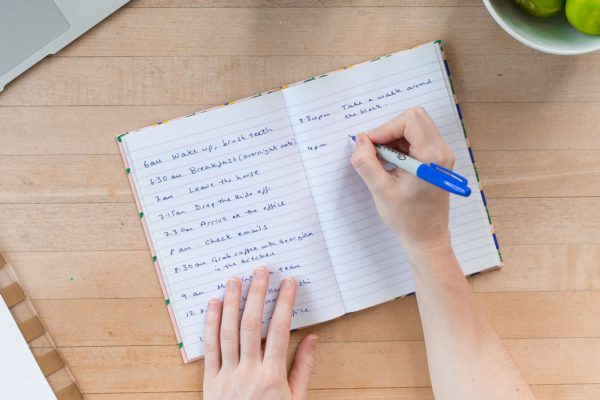 6am Wake up, brush teeth
6:30 am Breakfast (overnight oats)
7am Leave the house
7:15am Drop the kids off
7:30am Arrive at the office
8 am Check emails
8:30 am Grab coffee with Georgina
in the kitchen
9: am
12
office
3:30pm Take a walk around
the block.
4pm